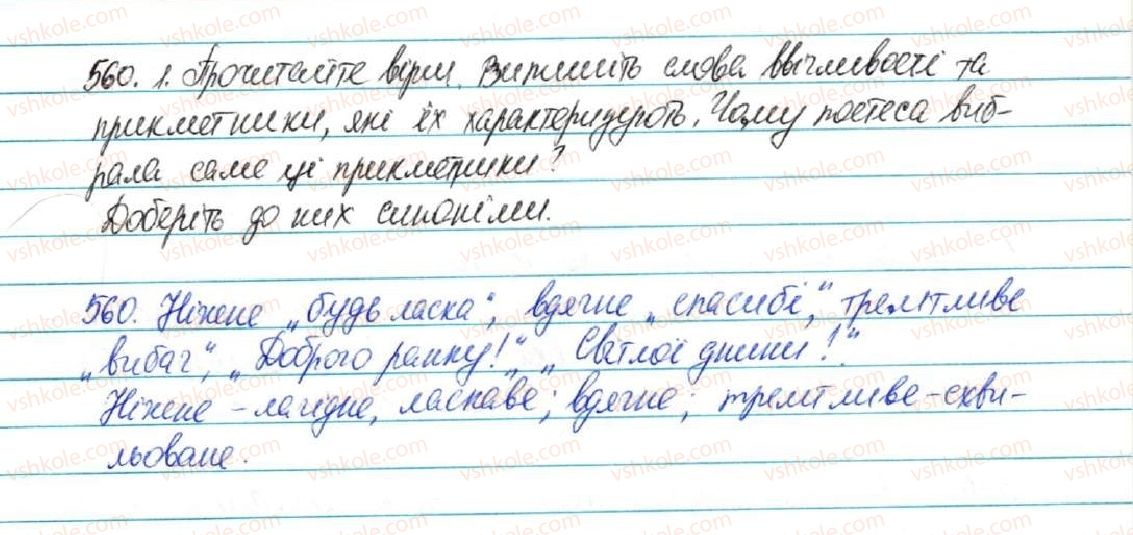 560. 1. Прочитайте вірш. Випишіть слова ввічливості та
прикметники, які їх характеризують. Чому поетеса виб-
рала саме ці прикметники?
Доберіть до них синоніми.
560. Ніжне „будь ласка“, вдячне „спасибі“, трепетливе
„вибач“, „Доброго ранку!“, „Світлої днини!“
Ніжне – лагідне, ласкаве; вдячне; трепетливе – схви-
льоване.